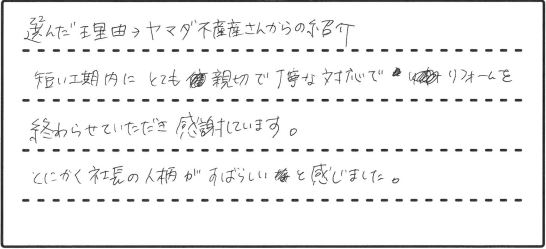 選んだ理由→ヤマダ不産産さんからの紹介
短い工期内に とても 親切で 丁寧な対応で リフォームを
終わらせていただき 感謝しています。
とにかく 社長の人柄が すばらしい と感じました。